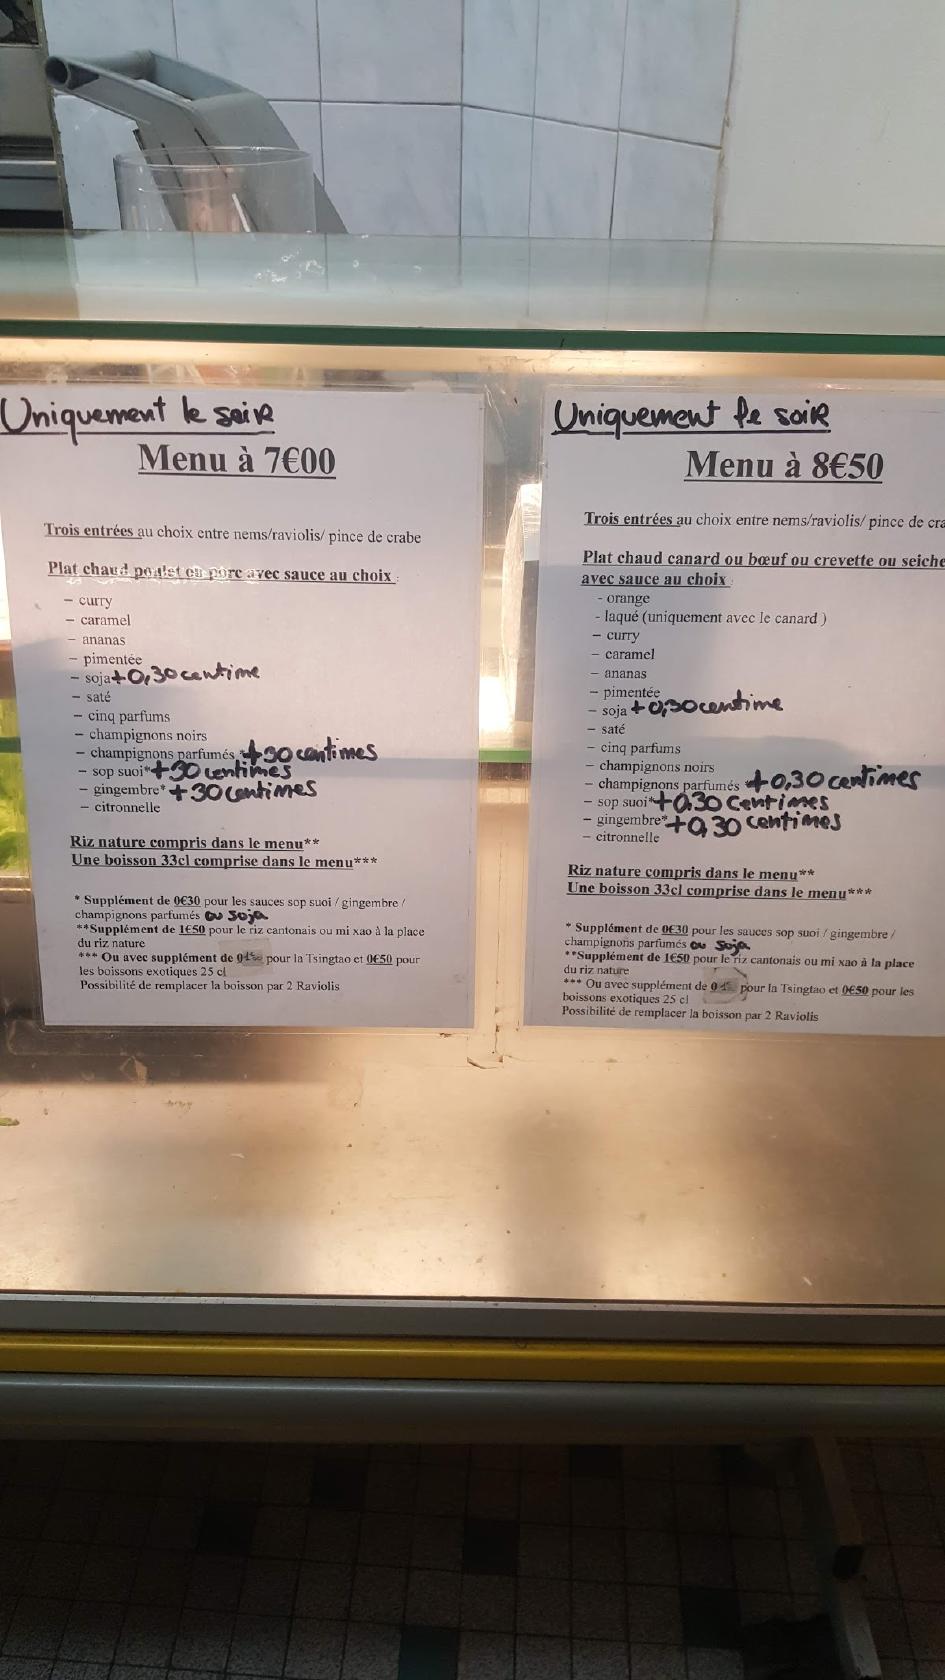 Uniquement le soir
Menu à 7€00
Trois entrées au choix entre nems/raviolis/ pince de crabe
Plat chaud poulet ou porc avec sauce au choix :
– curry
– caramel
– ananas
– pimentée
– soja +0,30 centime
– saté
– cinq parfums
– champignons noirs
– champignons parfumés * +30 centimes
– sop suoi* +30 centimes
– gingembre* +30 centimes
– citronnelle
Riz nature compris dans le menu**
Une boisson 33cl comprise dans le menu***
* Supplément de 0€30 pour les sauces sop suoi / gingembre /
champignons parfumés ou soja
**Supplément de 1€50 pour le riz cantonais ou mi xao à la place
du riz nature
*** Ou avec supplément de pour la Tsingtao et 0€50 pour
les boissons exotiques 25 cl
Possibilité de remplacer la boisson par 2 Raviolis
Uniquement le soir
Menu à 8€50
Trois entrées au choix entre nems/raviolis/ pince de
Plat chaud canard ou bœuf ou crevette ou seiche
avec sauce au choix :
- orange
- laqué (uniquement avec le canard )
– curry
– caramel
– ananas
– pimentée
– soja +0,30 centime
– saté
– cinq parfums
– champignons noirs
– champignons parfumés * +0,30 centimes
– sop suoi* +0.30 centimes
– gingembre* +0,30 centimes
– citronnelle
Riz nature compris dans le menu**
Une boisson 33cl comprise dans le menu***
* Supplément de 0€30 pour les sauces sop suoi / gingembre /
champignons parfumés ou soja
**Supplément de 1€50 pour le riz cantonais ou mi xao à la place
du riz nature
*** Ou avec supplément de pour la Tsingtao et 0€50 pour les
boissons exotiques 25 cl
Possibilité de remplacer la boisson par 2 Raviolis